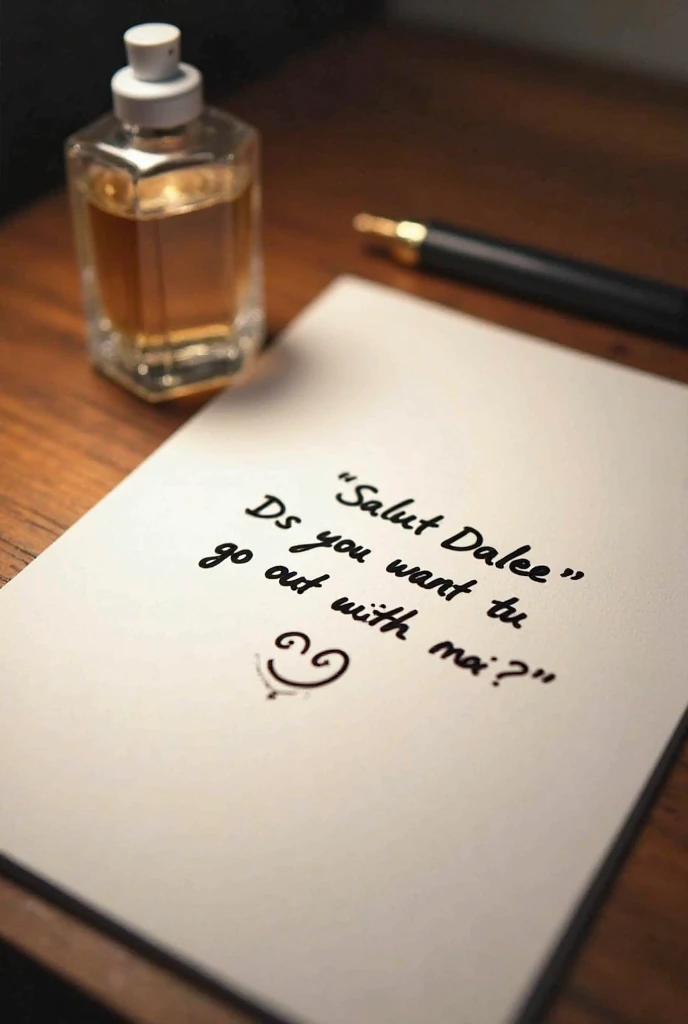 “Salut Dalee”
Ds you want tu
go out with moi?”